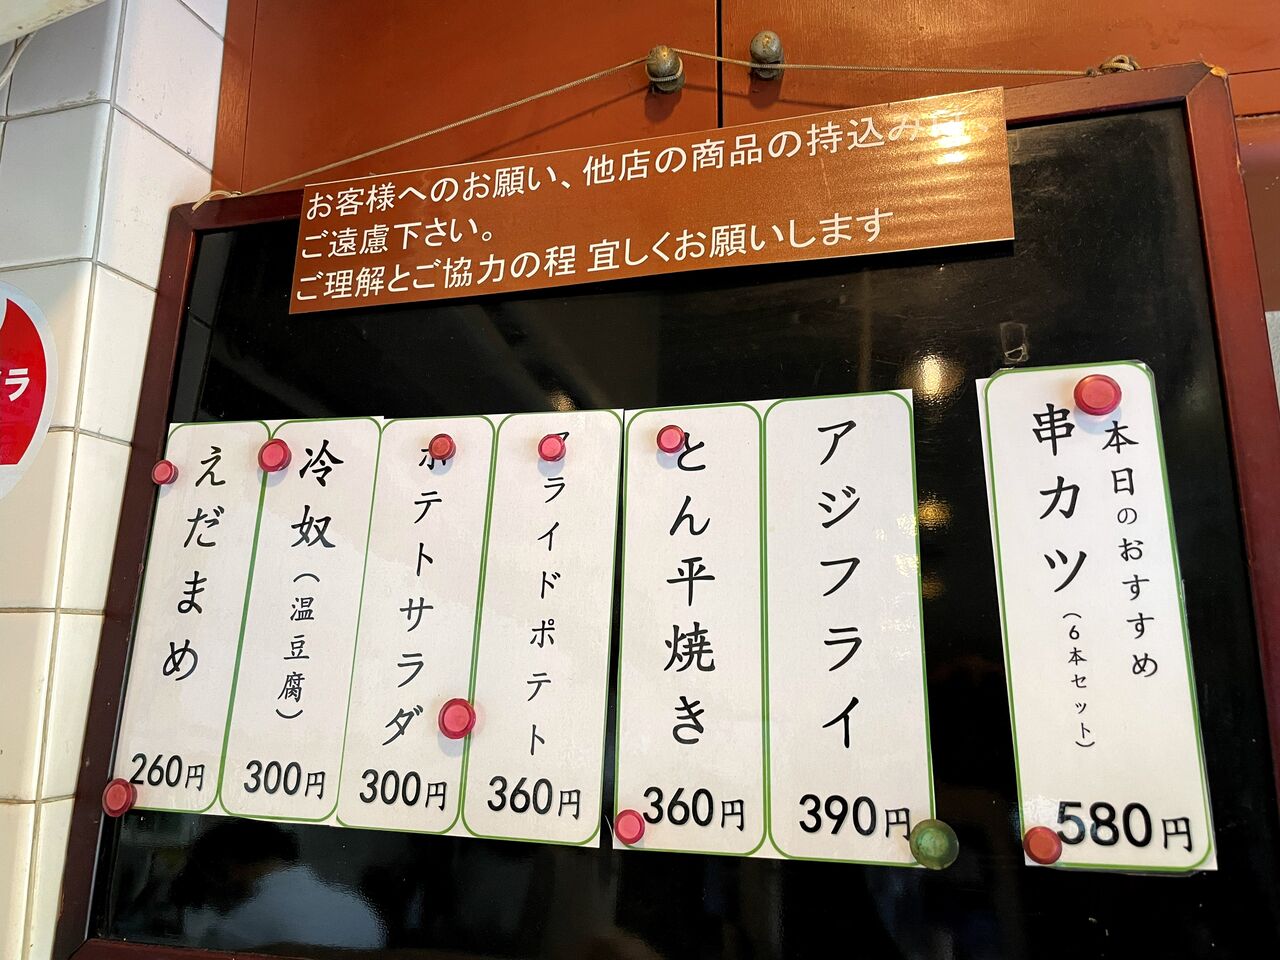 お客様へのお願い、他店の商品の持込みは、
ご遠慮下さい。
ご理解とご協力の程 宜しくお願いします
本日のおすすめ
串カツ(6本セット)
580円
アジフライ
390円
とん平焼き
360円
フライドポテト
360円
ポテトサラダ
300円
冷奴(温豆腐)
300円
えだまめ
260円
ラ